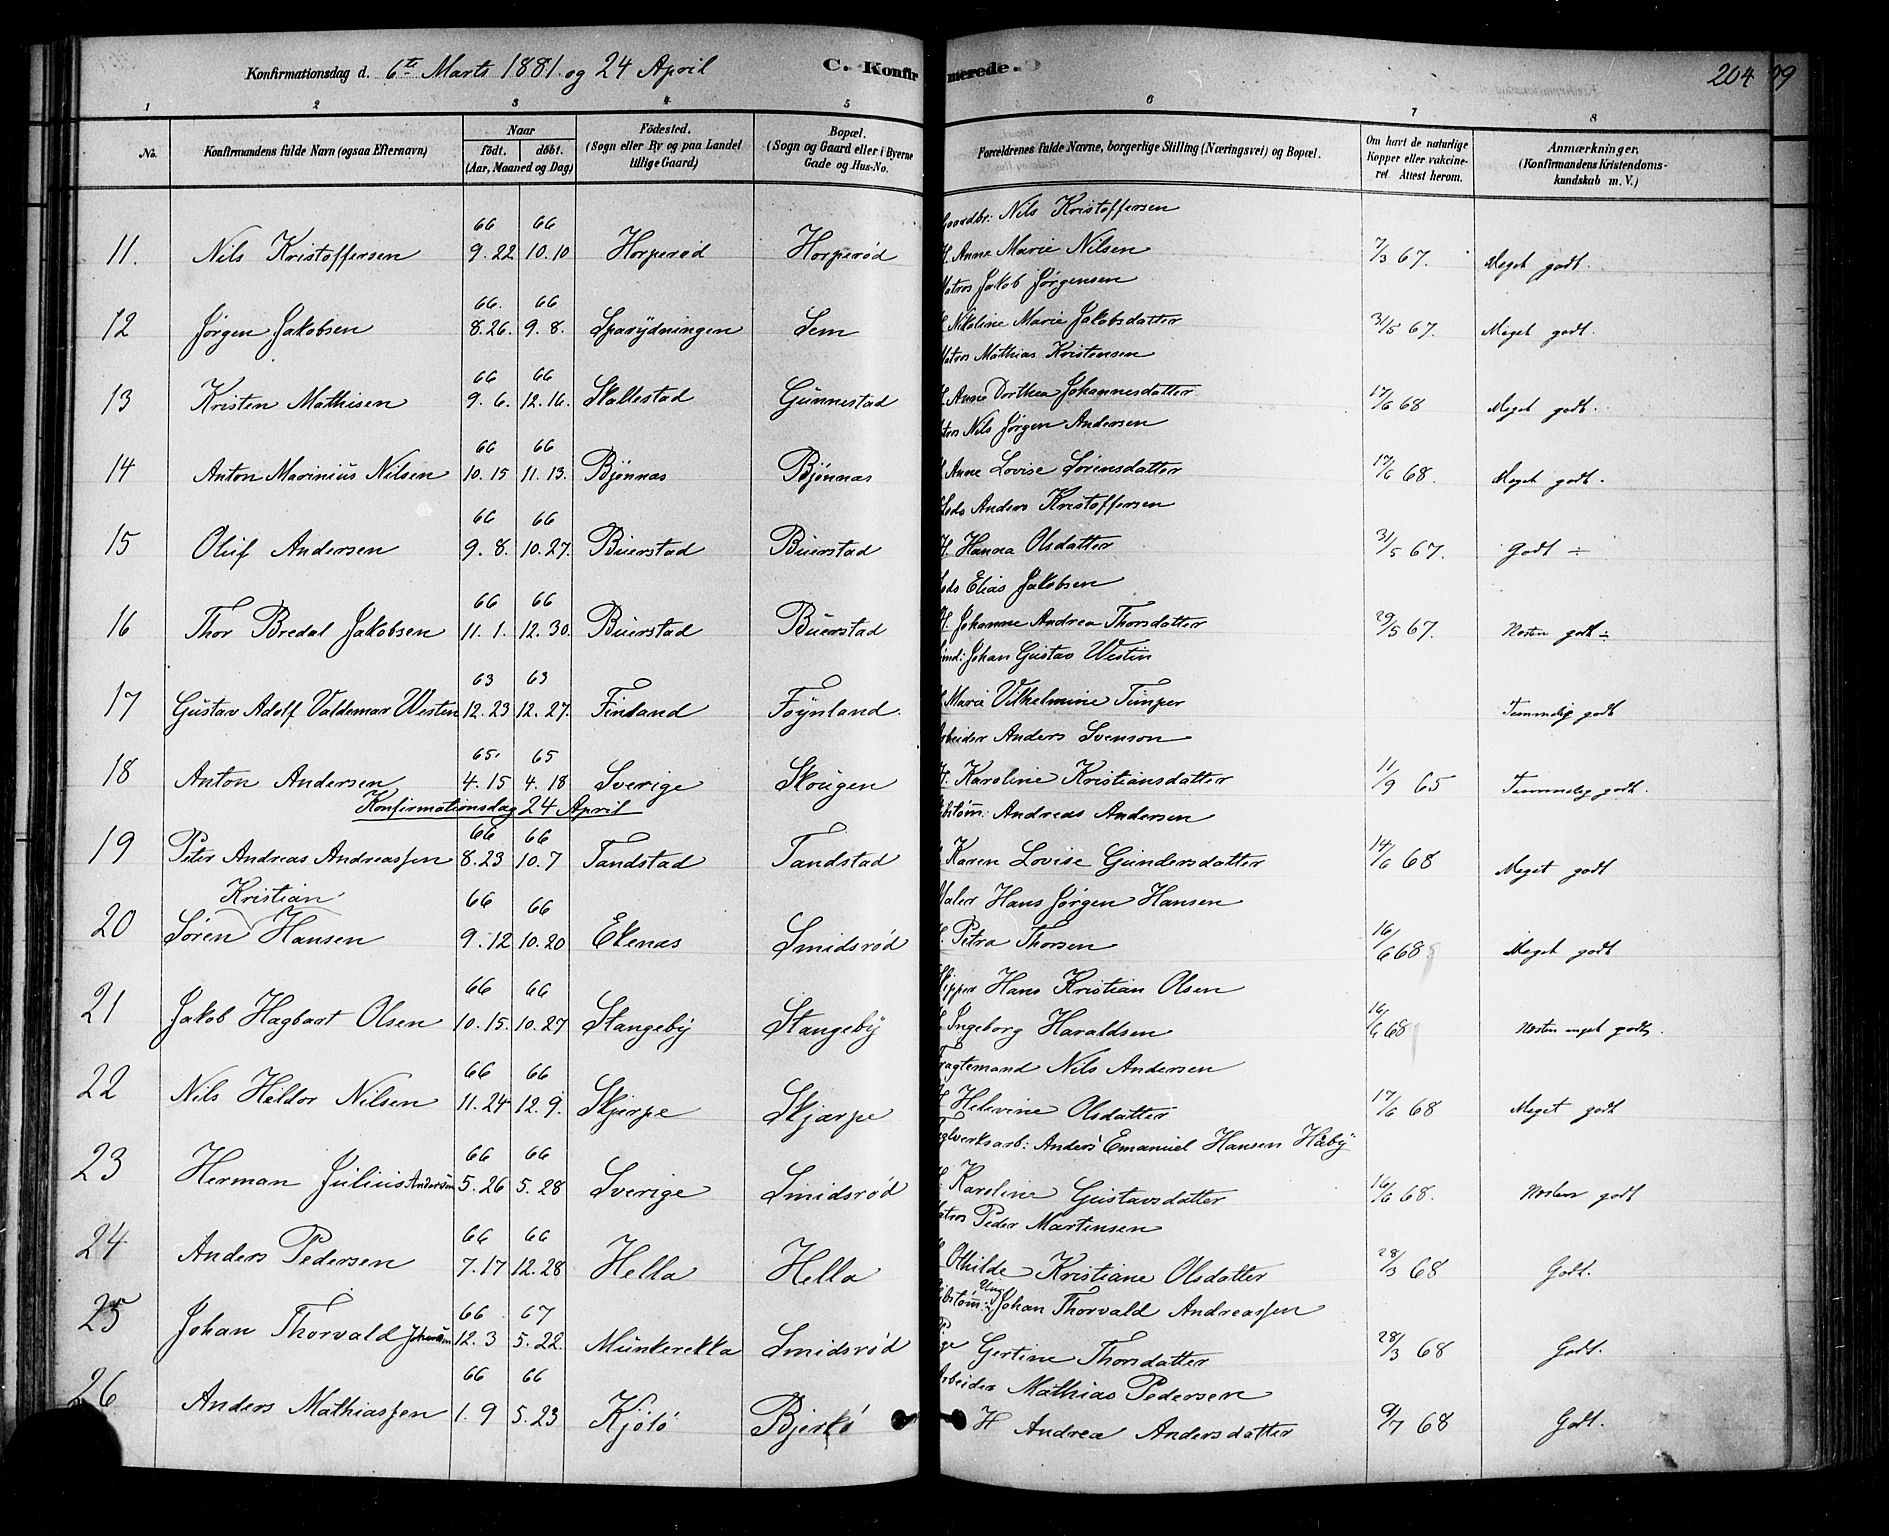 Konfirmationsdag d. 6te Marts 1881 og 24 April C. Konfirmerede. 204
1 2 3 4 5 6 7 8
No. Konfirmandens fulde Navn (ogsaa Efternavn) Naar født. døbt. (Aar, Maaned og Dag) Födested. (Sogn eller By og paa Landet tillige Gaard) Bopæl. (Sogn og Gaard eller i Byerne Gade og Hus-No. Forældrenes fulde Navne, borgerlige Stilling (Næringsvei) og Bopæl. Om havt de naturlige Kopper eller vakcineret Attest herom. Anmærkninger. (Konfirmandens Kristendomskundskab m. V.)
66 66 Gaardbr: Nils Kristoffersen
11. Nils Kristoffersen 9. 22 10. 10 Horperød Horperød H. Anne Marie Nilsen 7/3 67. Meget godt.
66. 66 Matros Jakob Jørgensen
12 Jørgen Jakobsen 8. 26. 9. 8. Sem Nikoline Marie Jakobsdatter 31/5 67. Meget godt.
66 66 Matros Mathias Kristensen
13 Kristen Mathisen 9. 6. 12. 16. Skallestad Gunnestad H. Anne Dorthea Johannesdatter 17/6 68 Meget godt.
66 66 Nils Jørgen Andersen
14 Anton Marinius Nilsen 10. 15 11. 13. Bjønnas Bjønnas Anne Lovise Sørensdatter 17/6 68. Meget godt.
66 66 Lods Anders Kristoffersen
15 Oluf Andersen 9. 8. 10. 27. Buerstad Buerstad H. Hanna Olsdatter 31/5 67. Godt ÷
66 66 Lods Elias Jakobsen
16 Thor Bredal Jakobsen 11. 1. 12. 30. Buerstad Buerstad H. Johanne Andrea Thorsdatter 29/5 67. Nesten godt ÷
63 63 Johan Gustav Westin
17 Gustav Adolf Valdemar Westin 12. 23 12. 27. Finland Føynland. Marie Vilhelmine Timper Temmelig godt
65. 65 Arbeider Anders Svenson
18 Anton Andersen 4. 15 4. 18 Sverige Skougen H. Karoline Kristiansdatter 11/9 65 Temmelig godt.
Konfirmationsdag 24 April
66 66 Andreas Andersen
19 Peter Andreas Andreassen 8. 23 10. 7 Tandstad Tandstad Karen Lovise Gundersdatter 14/6 68 Meget godt
Kristian 66 66 Maler Hans Jørgen Hansen
20 Søren Hansen 9. 12 10. 20 Ekenas Smidsrød H. Petra Thorsen 16/6 68 Meget godt
66 66 Skipper Hans Kristian Olsen
21 Jakob Hagbart Olsen 10. 15. 10. 27 Stangeby Stangeby H. Ingeborg Haraldsen 16/6 68 Nesten meget godt.
66 66 Fragtemand Nils Andersen
22 Nils Heldor Nilsen 11. 24 12. 9. Skjerpe Skjærpe H Helevine Olsdatter 17/6 68 Meget godt
66 66 Teglverksarb: Anders Emanuel Hansen Håby
23 Herman Julius Andersen 5. 26 5. 28 Sverige Smidsrød H. Karoline Gustavsdatter 16/6 68. Nesten godt
66 66 Matros Peder Martinsen
24 Anders Pedersen 7. 17 12. 28 Hella Hella Othilde Kristiane Olsdatter 28/3 68 Godt.
66 67 Ung Johan Thorvald Andreassen
25 Johan Thorvald Johansen 12. 3 5. 22. Munkerekka Smidsrød Pige Gertine Thorsdatter 28/3 68 Godt.
66 66 Arbeider Mathias Pedersen
26 Anders Mathiassen 1. 9 5. 23 Kjølø Bjerkø H Andrea Andersdatter 9/7 68 Godt.